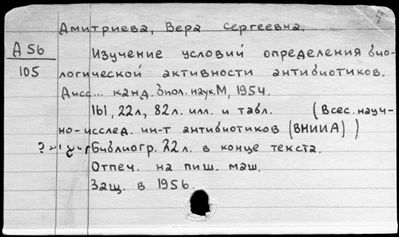 Дмитриева, Вера Сергеевна.
А 56
105
Изучение условий определения био-
логической активности антибиотиков.
Дисс... канд. биол. наук. М, 1954.
161, 22л, 82л. илл. и табл. (Всес. науч-
но-исслед. ин-т антибиотиков (ВНИИА))
Библиогр. 22л. в конце текста.
Отпеч. на пиш. маш.
Защ. в 1956.